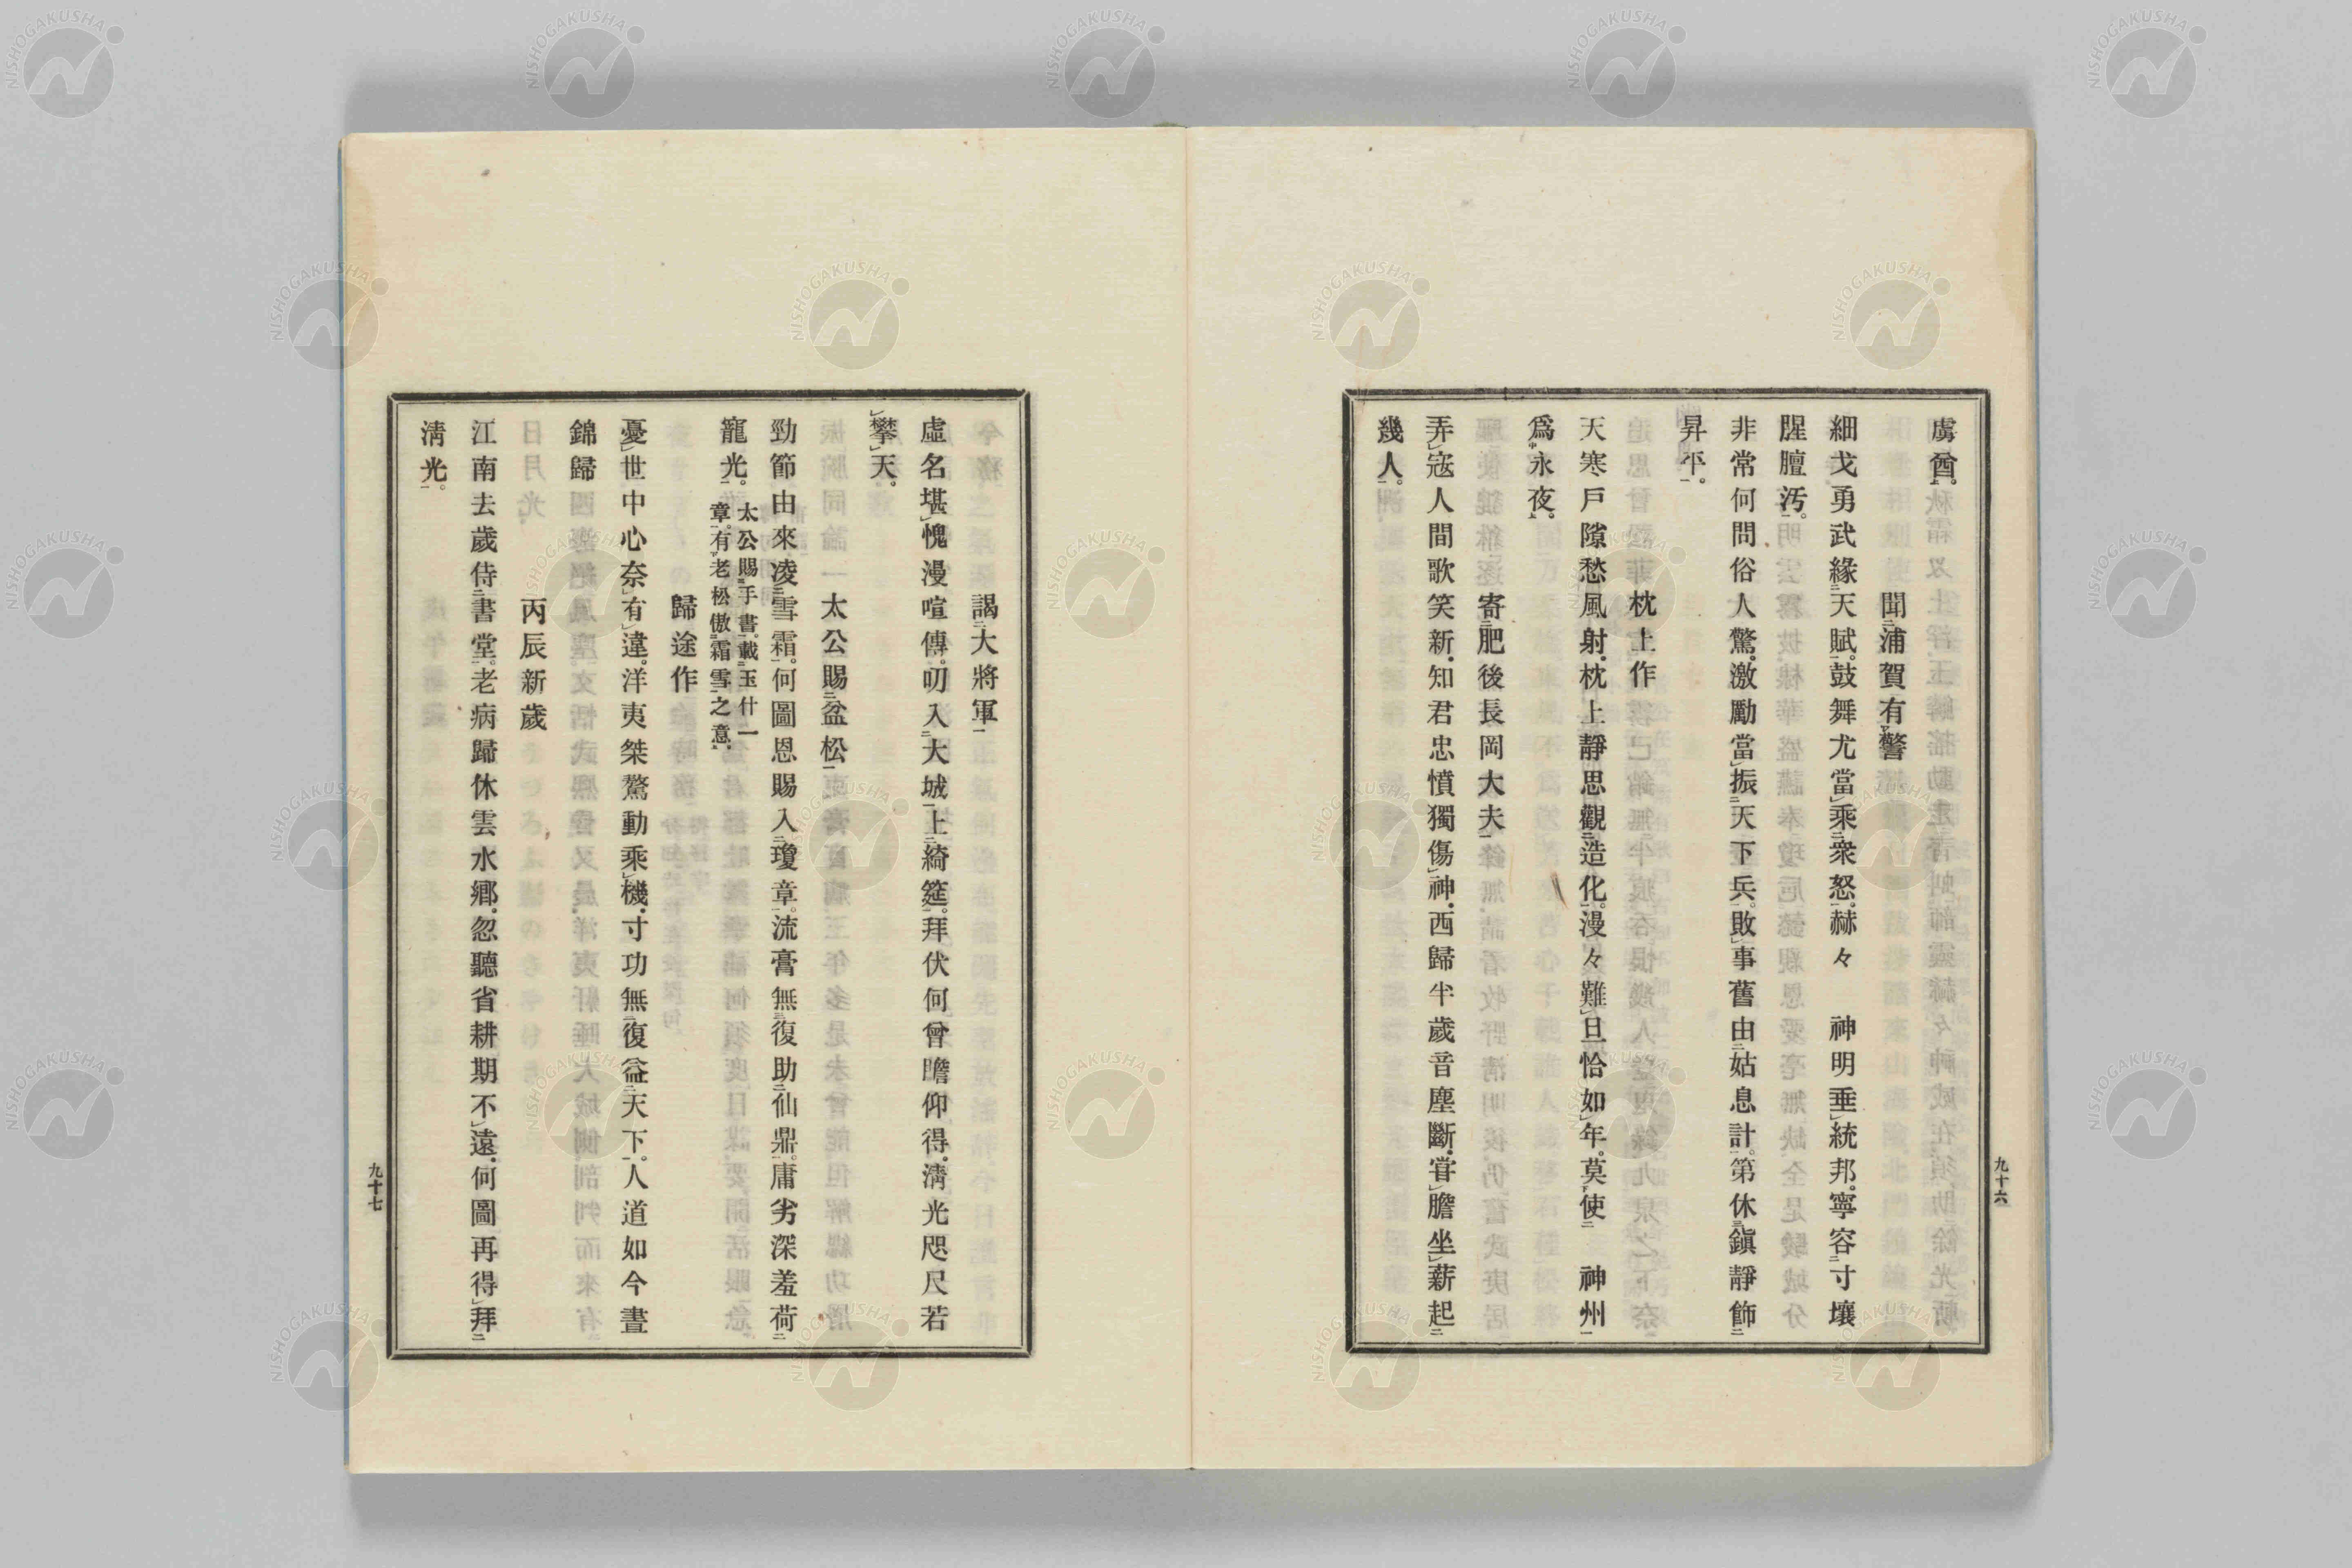 虜酋。
聞浦賀有警
細戈勇武緣天賦。鼓舞尤當乘衆怒。赫々　神明垂統邦。寧容寸壤
腥膻汚。
非常何問俗人驚。激勵當振天下兵。敗事舊由姑息計。第休鎭靜飾
昇平。
枕上作
天寒戶隙愁風射。枕上靜思觀造化。漫々難旦恰如年。莫使　神州
爲永夜。
寄肥後長岡大夫
弄寇人間歌笑新。知君忠憤獨傷神。西歸半歲音塵斷。甞膽坐薪起
幾人。
九十六
謁大將軍
虛名堪愧漫喧傳。叨入大城上綺筵。拜伏何曾瞻仰得。淸光咫尺若
攀天。
太公賜盆松
勁節由來凌雪霜。何圖恩賜入瓊章。流膏無復助仙鼎。庸劣深羞荷
寵光。太公賜手書。載玉什一
章。有老松傲霜雪之意。
歸途作
憂世中心奈有違。洋夷桀驁動乘機。寸功無復益天下。人道如今晝
錦歸
丙辰新歲
江南去歲侍書堂。老病歸休雲水鄉。忽聽省耕期不遠。何圖再得拜
淸光。
九十七
NISHOGAKUSHA